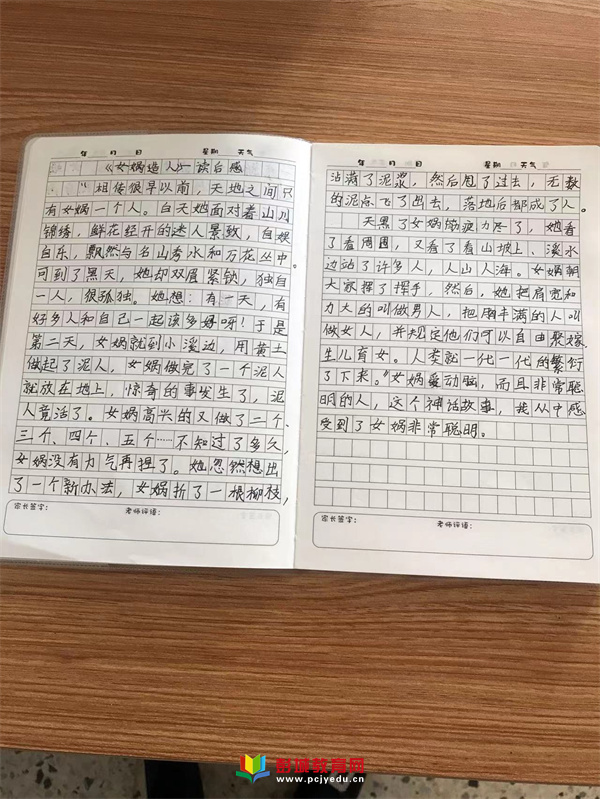 年 月 日 星期 天气
《女娲造人》读后感
"相传很早以前，天地之间只
有女娲一个人。白天她面对着山川
锦绣，鲜花烂开的迷人景致，自娱
自乐，飘然与名山秀水和万花丛中。
可到了黑天，她却双眉紧锁，独自
一人，很孤独。她想：有一天，有
好多人和自己一起该多好呀！于是
第二天，女娲就到小溪边，用黄土
做起了泥人，女娲做完了一个泥人
就放在地上，惊奇的事发生了，泥
人竟活了。女娲高兴的又做了二个、
三个、四个、五个……不知过了多久，
女娲没有力气再捏了。她忽然想出
了一个新办法，女娲折了一根柳枝，
家长签字： 老师评语：
年 月 日 星期 天气
沾满了泥浆，然后甩了过去，无数
的泥点飞了出去，落地后都成了人。
天黑了女娲筋疲力尽了，她看
了看周围，又看了看山坡上、溪水
边站了许多人，人山人海。女娲朝
大家挥了挥手，然后，她把肩宽和
力大的叫做男人，把丰满的人叫
做女人，并规定他们可以自由聚嫁，
生儿育女。人类就一代一代的繁衍
了下来。"女娲爱动脑，而且非常聪
明的人，这个神话故事，我从中感
受到了女娲非常聪明。
家长签字： 老师评语：
彭城教育网
www.pcjyedu.cn